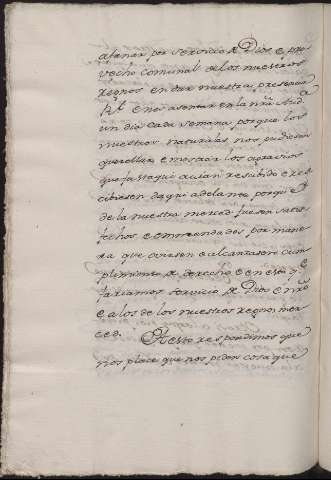 afanar por servicio de Dios, e pro
vecho comunal de los nuestros
regnos en dar nuestra presencia
Rl. e nos asentar en la nrã Aud.ª
un dia cada semana porque los
nuestros naturales nos pudiesen
querellar e mostrar los agravios
que fasta aqui avian resebido e re
cibiesen daqui adelante, porque
de la nuestra merced fuesen satis
fechos, e emendados por mane
ra que oviesen e alcanzasen cum
plimiento de derecho e en esto q.e
fariamos servicio de Dios e nrõ
e a los de los nuestros regnos mer
ced. A esto respondimos que
nos place que nos piden cosa que